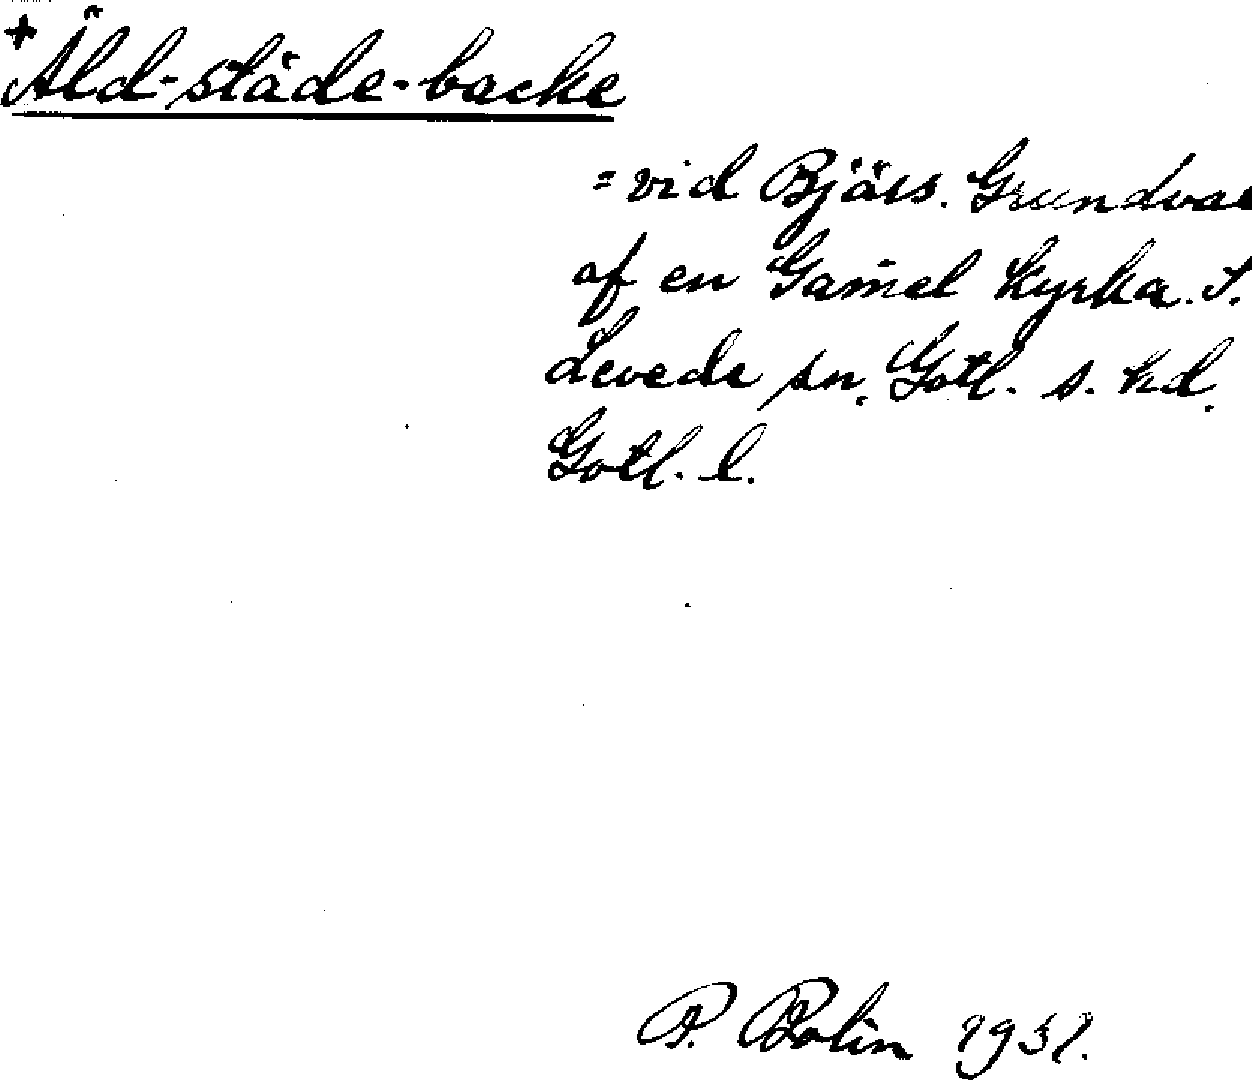 +
Äld-städe-backe
= vid Bjärs. Grundval
af en Gam̄el Kyrka. I.
Levede sn. Gotl. s. hd.
Gotl. l.
P. Bolin 1931.